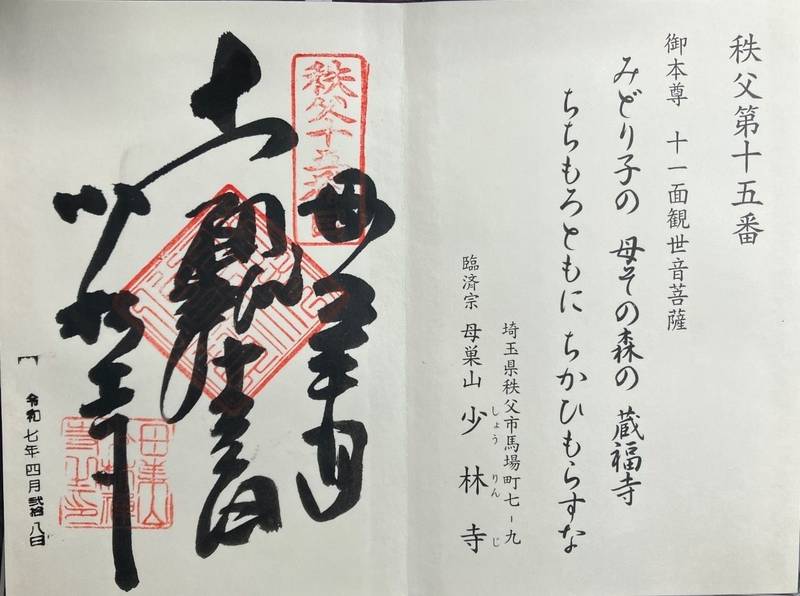 秩父第十五番
御本尊 十一面観世音菩薩
みどり子の 母その森の 蔵福寺
ちちもろともに ちかひもらすな
埼玉県秩父市馬場町七-九
臨済宗 母巣山 少林寺
しょうりんじ
秩父十五番
十一面
観世音
少林寺
令和七年四月弐拾八日